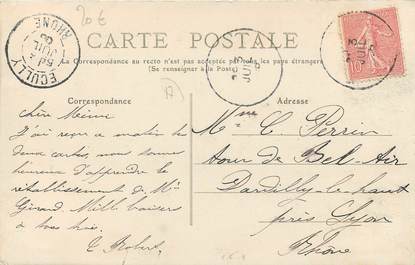 20€
ECULLY
RHONE
CARTE POSTALE
La correspondance au recto n'est pas acceptée par tous les pays étrangers
(Se renseigner à la Poste)
Correspondance
Adresse
chère Mémé
J'ai reçu ce matin tes
deux cartes, nous sommes
heureux d'apprendre le
rétablissement de Mr
Girard. Mille baisers
à tous trois.
C Robert.
Mme C. Perrin
tour de Bel-Air
Dardilly-le-haut
près Lyon
Rhône